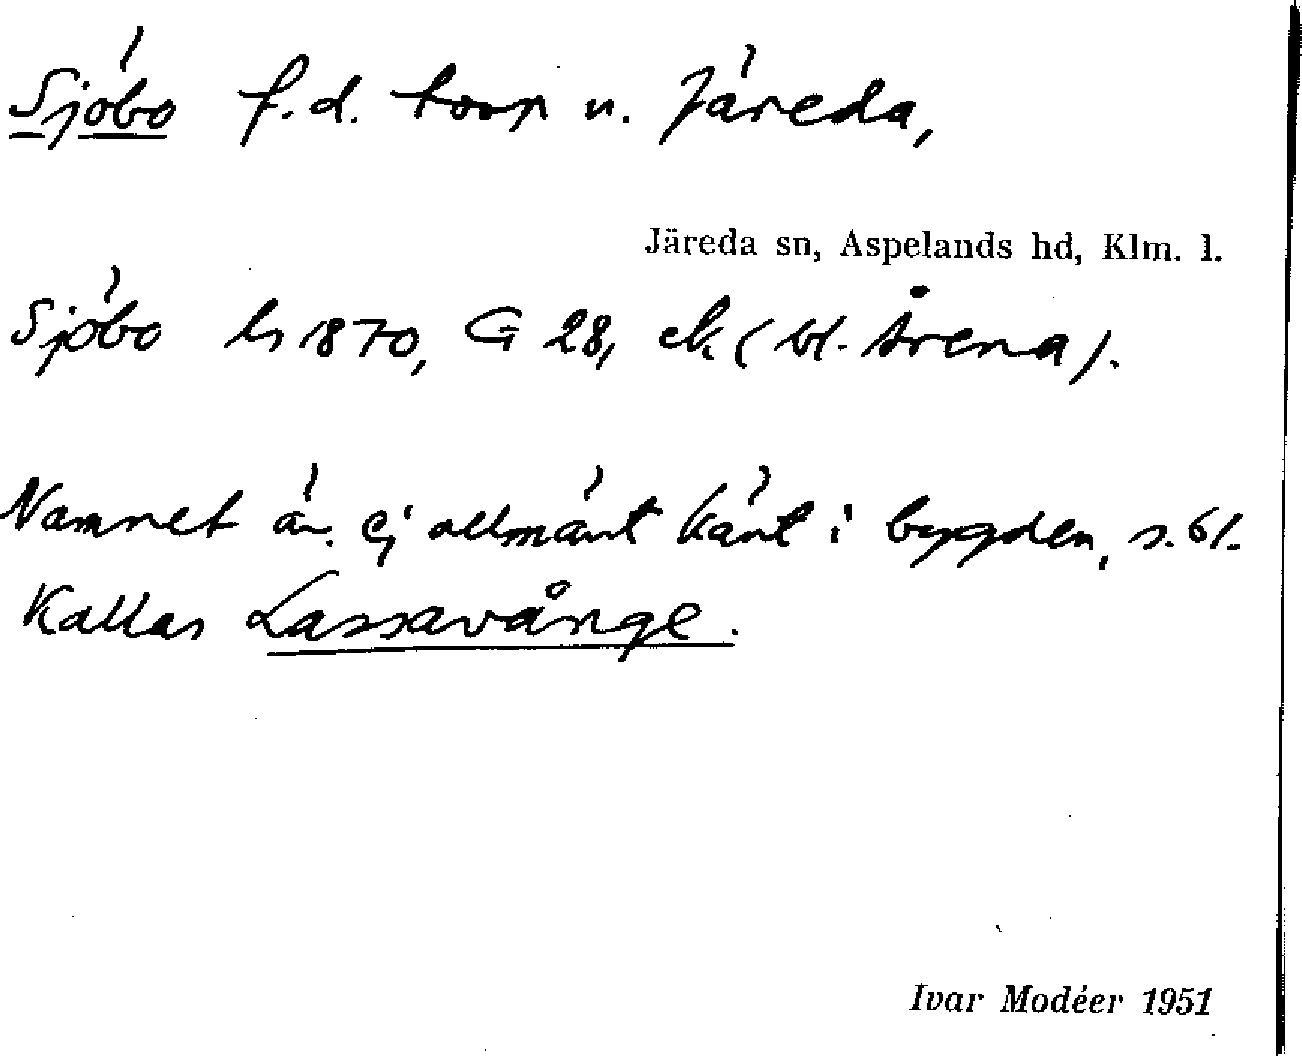 Sjöbo f.d. torp u. Järeda,
Järeda sn, Aspelands hd, Klm. l.
Sjöbo hs 1870, G 28, ek (bl. Årena).
Namnet är ej allmänt känt i bygden, s. bl.
Kallas Lassavånge.
Ivar Modéer 1951